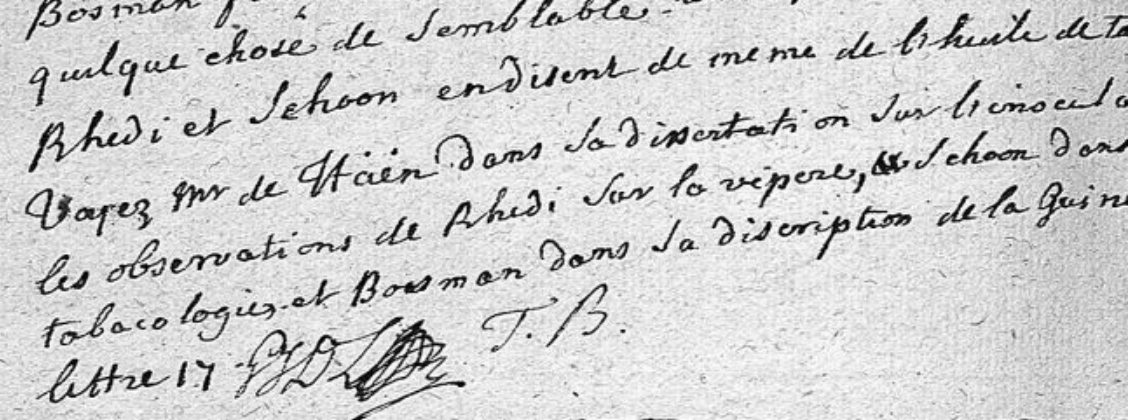 Bosman
quelque chose de semblable.
Rhedi et Schoon endisent de meme de l'heule de ta
Vayez Mr de Haën dans sa dissertation sur l'inocula
les observations de Rhedi sur la vipere, et Schoon dans
tabacologie, et Bosman dans sa discription de la Guine
lettre 17 T. B.